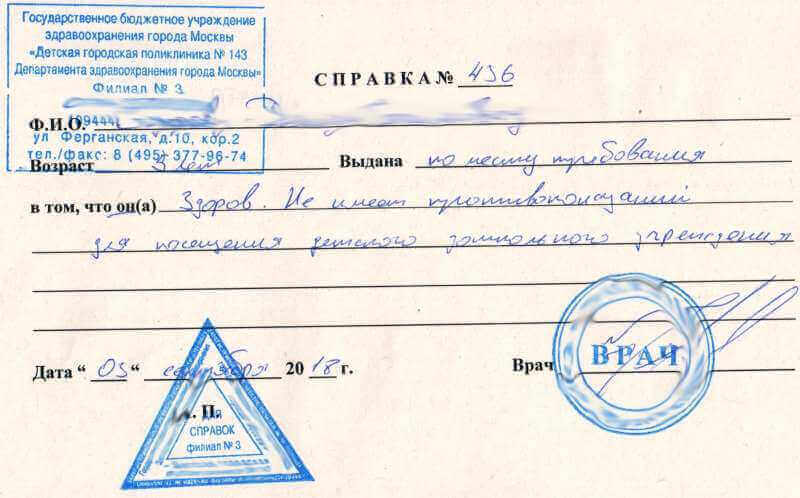 Государственное бюджетное учреждение
здравоохранения города Москвы
«Детская городская поликлиника № 143
Департамента здравоохранения города Москвы»
Филиал № 3
СПРАВКА № 436
Ф.И.О.
109444
ул Ферганская, д.10, кор.2
тел./факс: 8 (495) 377-96-74
Возраст 3 лет Выдана по месту требования
в том, что он(а) Здоров. Не имеет противопоказаний
для посещения детского дошкольного учреждения
Дата “ 03 “ сентября 20 18 г. Врач
ВРАЧ
М. П.
ДЛЯ
СПРАВОК
филиал № 3